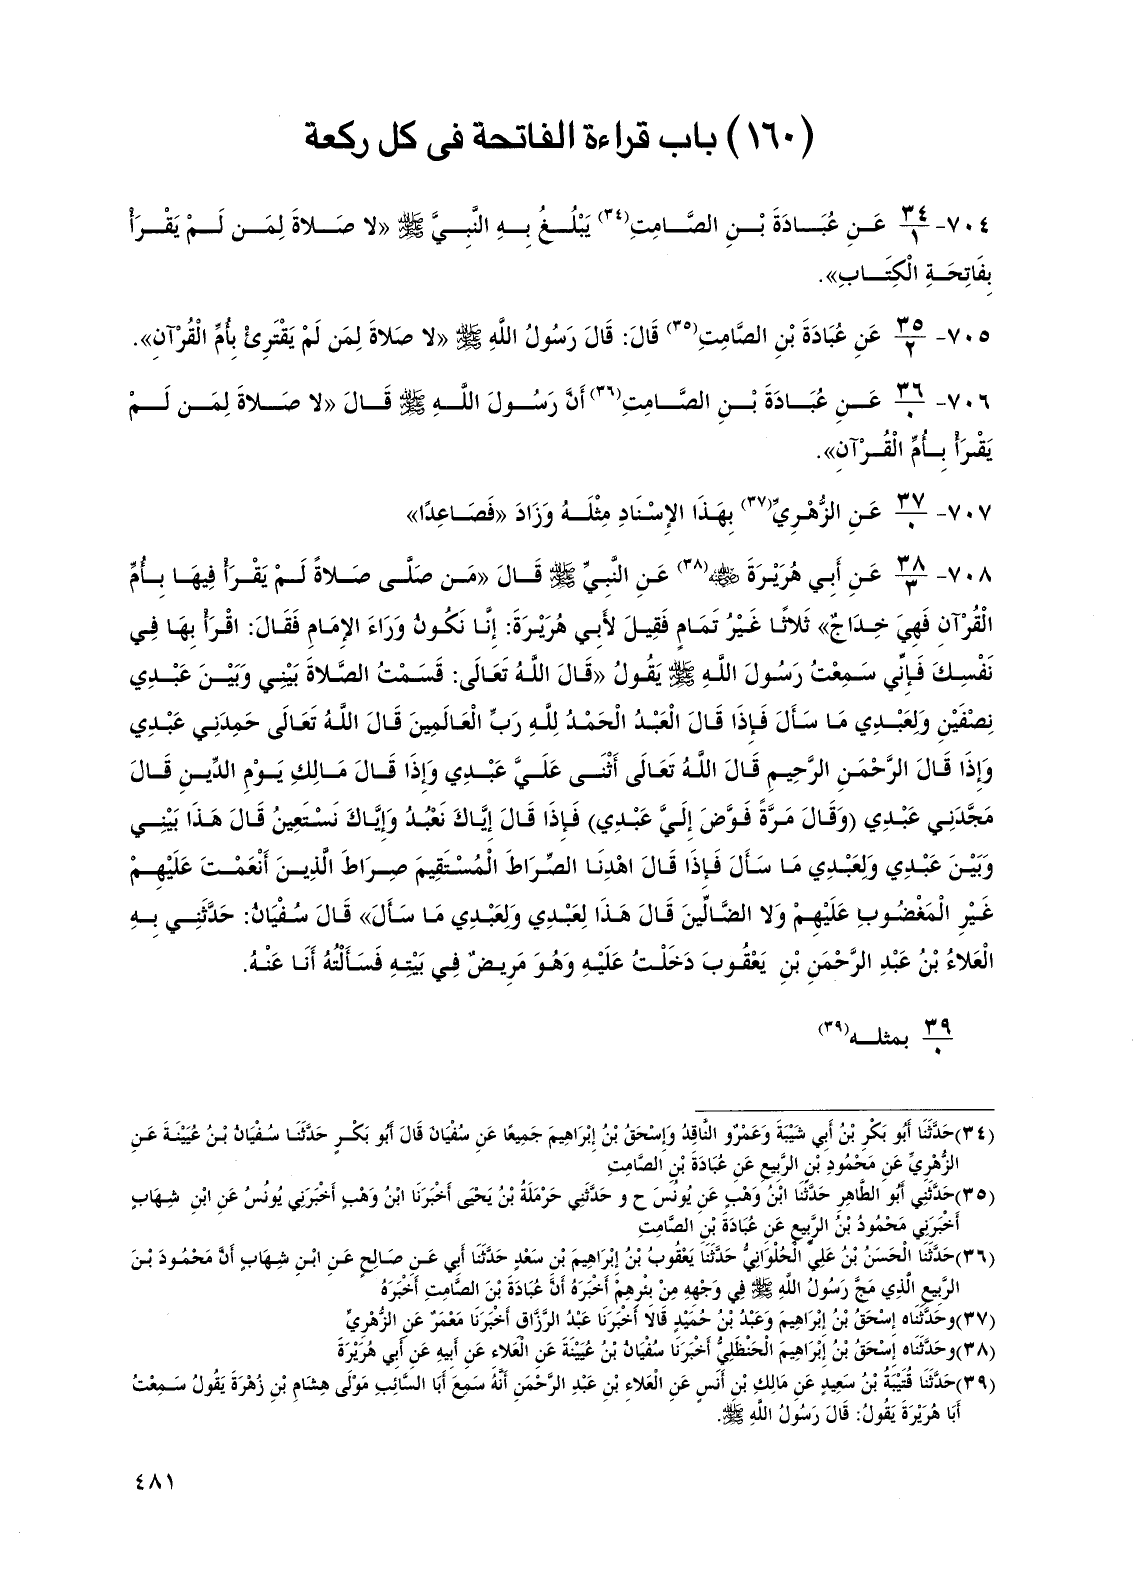 (١٦٠) باب قراءة الفاتحة فى كل ركعة
٧٠٤- ٣٤/١ عَـنِ عُبَـادَةَ بْـنِ الصَّـامِتِ(٣٤) يَبْلُـغُ بِـهِ النَّبِـيَّ ﷺ «لا صَـلاةَ لِمَـن لَـمْ يَقْـرَأْ
بِفَاتِحَـةِ الْكِتَـابِ».
٧٠٥- ٣٥/٢ عَنِ عُبَادَةَ بْنِ الصَّامِتِ(٣٥) قَالَ: قَالَ رَسُولُ اللَّهِ ﷺ «لا صَلاةَ لِمَن لَمْ يَقْتَرِئْ بِأُمِّ الْقُرْآنِ».
٧٠٦- ٣٦/٠ عَـنِ عُبَـادَةَ بْـنِ الصَّـامِتِ(٣٦) أَنَّ رَسُـولَ اللَّـهِ ﷺ قَـالَ «لا صَـلاةَ لِمَـن لَـمْ
يَقْـرَأْ بِـأُمِّ الْقُـرْآنِ».
٧٠٧- ٣٧/٠ عَنِ الزُّهْرِيِّ(٣٧) بِهَـذَا الإِسْنَادِ مِثْلَـهُ وَزَادَ «فَصَـاعِدًا»
٧٠٨- ٣٨/٣ عَـنِ أَبِي هُرَيْـرَةَ ﷺ(٣٨) عَـنِ النَّبِيِّ ﷺ قَـالَ «مَـن صَلَّـى صَـلاةً لَـمْ يَقْـرَأْ فِيهَـا بِـأُمِّ
الْقُرْآنِ فَهِيَ خِـدَاجٌ» ثَلاثًا غَيْرُ تَمَامٍ فَقِيلَ لأَبِي هُرَيْرَةَ: إِنَّا نَكُونُ وَرَاءَ الإِمَامِ فَقَالَ: اقْرَأْ بِهَا فِي
نَفْسِكَ فَإِنِّي سَمِعْتُ رَسُولَ اللَّهِ ﷺ يَقُولُ «قَالَ اللَّهُ تَعَالَى: قَسَمْتُ الصَّلاةَ بَيْنِي وَبَيْنَ عَبْدِي
نِصْفَيْنِ وَلِعَبْدِي مَا سَأَلَ فَإِذَا قَالَ الْعَبْدُ الْحَمْدُ لِلَّهِ رَبِّ الْعَالَمِينَ قَالَ اللَّهُ تَعَالَى حَمِدَنِي عَبْدِي
وَإِذَا قَالَ الرَّحْمَنِ الرَّحِيمِ قَالَ اللَّهُ تَعَالَى أَثْنَى عَلَيَّ عَبْدِي وَإِذَا قَالَ مَالِكِ يَوْمِ الدِّينِ قَالَ
مَجَّدَنِي عَبْدِي (وَقَالَ مَرَّةً فَوَّضَ إِلَيَّ عَبْدِي) فَإِذَا قَالَ إِيَّاكَ نَعْبُدُ وَإِيَّاكَ نَسْتَعِينُ قَالَ هَذَا بَيْنِي
وَبَيْنَ عَبْدِي وَلِعَبْدِي مَا سَأَلَ فَإِذَا قَالَ اهْدِنَا الصِّرَاطَ الْمُسْتَقِيمَ صِرَاطَ الَّذِينَ أَنْعَمْتَ عَلَيْهِمْ
غَيْرِ الْمَغْضُوبِ عَلَيْهِمْ وَلا الضَّالِّينَ قَالَ هَذَا لِعَبْدِي وَلِعَبْدِي مَا سَأَلَ» قَالَ سُفْيَانُ: حَدَّثَنِي بِهِ
الْعَلاءُ بْنُ عَبْدِ الرَّحْمَنِ بْنِ يَعْقُوبَ دَخَلْتُ عَلَيْهِ وَهُوَ مَرِيضٌ فِي بَيْتِهِ فَسَأَلْتُهُ أَنَا عَنْهُ.
٣٩/٠ بمثلـه(٣٩)
(٣٤)حَدَّثَنَا أَبُو بَكْرِ بْنُ أَبِي شَيْبَةَ وَعَمْرٌو النَّاقِدُ وَإِسْحَقُ بْنُ إِبْرَاهِيمَ جَمِيعًا عَنِ سُفْيَانَ قَالَ أَبُو بَكْرٍ حَدَّثَنَا سُفْيَانُ بْنُ عُيَيْنَةَ عَنِ
الزُّهْرِيِّ عَنِ مَحْمُودِ بْنِ الرَّبِيعِ عَنِ عُبَادَةَ بْنِ الصَّامِتِ
(٣٥)حَدَّثَنِي أَبُو الطَّاهِرِ حَدَّثَنَا ابْنُ وَهْبٍ عَنِ يُونُسَ ح و حَدَّثَنِي حَرْمَلَةُ بْنُ يَحْيَى أَخْبَرَنَا ابْنُ وَهْبٍ أَخْبَرَنِي يُونُسُ عَنِ ابْنِ شِهَابٍ
أَخْبَرَنِي مَحْمُودُ بْنُ الرَّبِيعِ عَنِ عُبَادَةَ بْنِ الصَّامِتِ
(٣٦)حَدَّثَنَا الْحَسَنُ بْنُ عَلِيٍّ الْحُلْوَانِيُّ حَدَّثَنَا يَعْقُوبُ بْنُ إِبْرَاهِيمَ بْنِ سَعْدٍ حَدَّثَنَا أَبِي عَنِ صَالِحٍ عَنِ ابْنِ شِهَابٍ أَنَّ مَحْمُودَ بْنَ
الرَّبِيعِ الَّذِي مَجَّ رَسُولُ اللَّهِ ﷺ فِي وَجْهِهِ مِنْ بِئْرِهِمْ أَخْبَرَهُ أَنَّ عُبَادَةَ بْنَ الصَّامِتِ أَخْبَرَهُ
(٣٧)و حَدَّثَنَاه إِسْحَقُ بْنُ إِبْرَاهِيمَ وَعَبْدُ بْنُ حُمَيْدٍ قَالا أَخْبَرَنَا عَبْدُ الرَّزَّاقِ أَخْبَرَنَا مَعْمَرٌ عَنِ الزُّهْرِيِّ
(٣٨)وحَدَّثَنَاه إِسْحَقُ بْنُ إِبْرَاهِيمَ الْحَنْظَلِيُّ أَخْبَرَنَا سُفْيَانُ بْنُ عُيَيْنَةَ عَنِ الْعَلاءِ عَنِ أَبِيهِ عَنِ أَبِي هُرَيْرَةَ
(٣٩)حَدَّثَنَا قُتَيْبَةُ بْنُ سَعِيدٍ عَنِ مَالِكِ بْنِ أَنَسٍ عَنِ الْعَلاءِ بْنِ عَبْدِ الرَّحْمَنِ أَنَّهُ سَمِعَ أَبَا السَّائِبِ مَوْلَى هِشَامِ بْنِ زُهْرَةَ يَقُولُ سَمِعْتُ
أَبَا هُرَيْرَةَ يَقُولُ: قَالَ رَسُولُ اللَّهِ ﷺ.
٤٨١